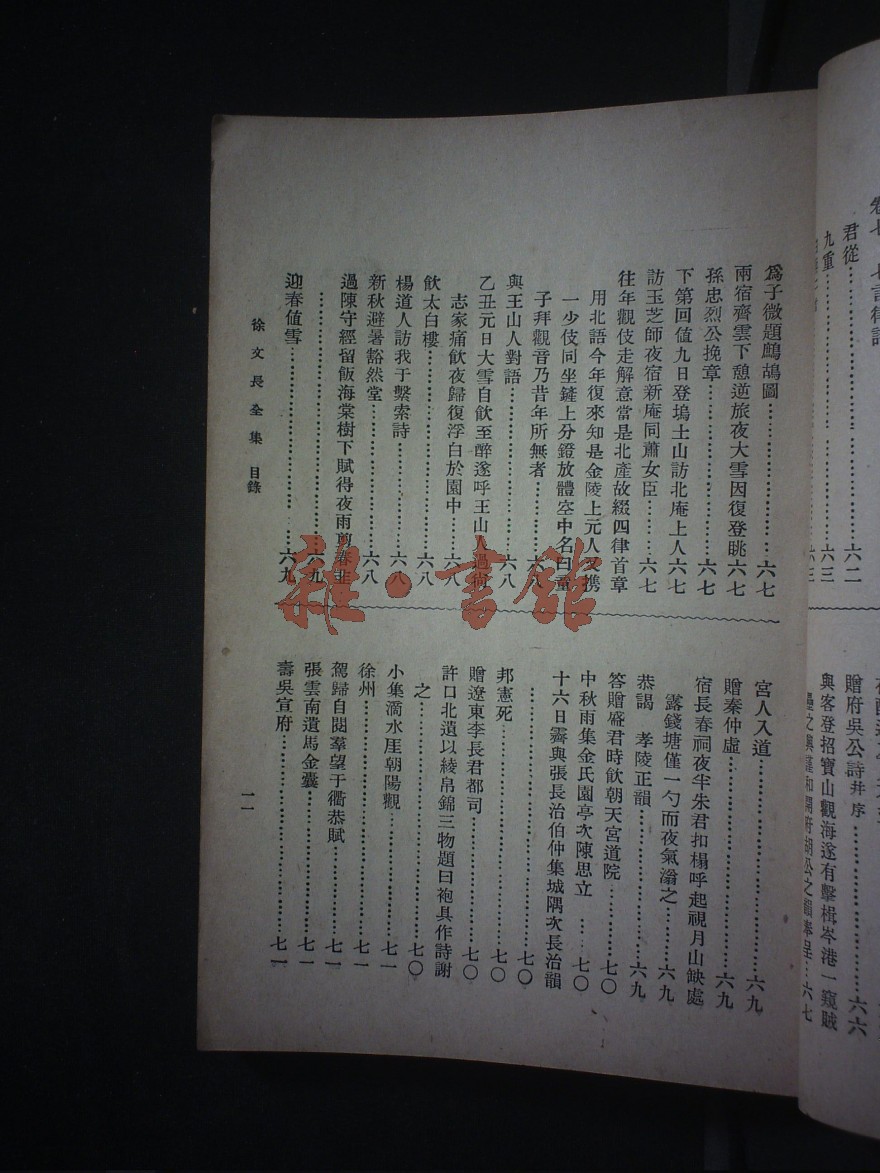 君從……六二
九重……六三
贈府吳公詩并序……六六
與客登招寶山觀海遂有擊楫岑港一窺賊
壘之興謹和開府胡公之韻奉呈…六七
爲子微題鷓鴣圖……六七
兩宿齊雲下憩逆旅夜大雪因復登眺…六七
孫忠烈公挽章……六七
下第回値九日登塢土山訪北庵上人六七
訪玉芝師夜宿新庵同蕭女臣……六七
往年觀伎走解意當是北產故綴四律首章
用北語今年復來知是金陵上元人又携
一少伎同坐鏟上分鐙放體空中名曰童
子拜觀音乃昔年所無者……六八
與王山人對語……六八
乙丑元日大雪自飮至醉遂呼王山人過尙
志家痛飮夜歸復浮白於園中……六八
飮太白樓……六八
楊道人訪我于繫索詩……六八
新秋避暑豁然堂……六八
過陳守經留飯海棠樹下賦得夜雨剪春韭
……六九
迎春値雪……六九
宮人入道……六九
贈秦仲虛……六九
宿長春祠夜半朱君扣榻呼起視月山缺處
露錢塘僅一勺而夜氣滃之……六九
恭謁　孝陵正韻……六九
答贈盛君時飮朝天宮道院……七〇
中秋雨集金氏園亭次陳思立……七〇
十六日霽與張長治伯仲集城隅次長治韻
……七〇
邦憲死……七〇
贈遼東李長君都司……七〇
許口北遺以綾帛錦三物題曰袍具作詩謝
之……七〇
小集滴水厓朝陽觀……七一
徐州……七一
駕歸自閱羣望于衢恭賦……七一
張雲南遺馬金囊……七一
壽吳宣府……七一
徐文長全集　目錄
一一
雜·書館